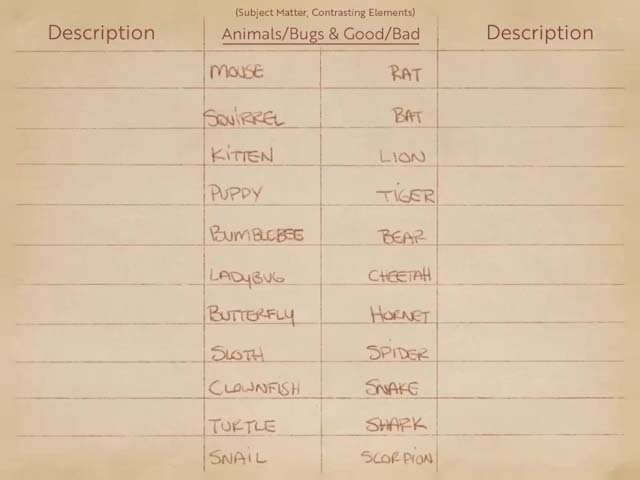 (Subject Matter, Contrasting Elements)
Description Animals/Bugs & Good/Bad Description
MOUSE RAT
SQUIRREL BAT
KITTEN LION
PUPPY TIGER
BUMBLEBEE BEAR
LADYBUG CHEETAH
BUTTERFLY HORNET
SLOTH SPIDER
CLOWNFISH SNAKE
TURTLE SHARK
SNAIL SCORPION